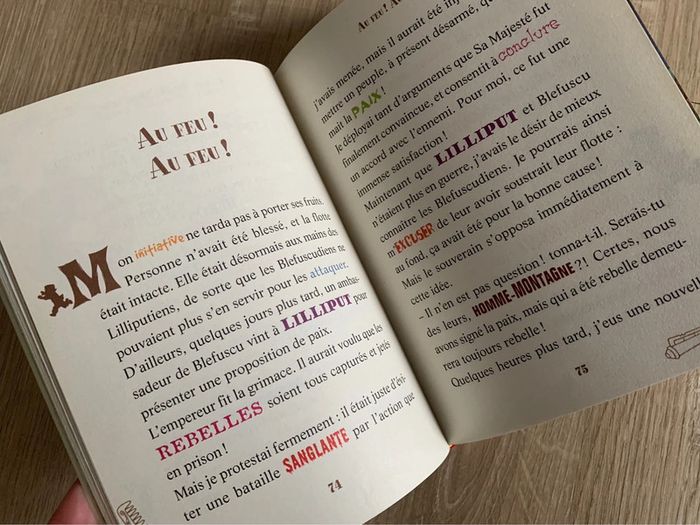 AU FEU !
AU FEU !
Mon initiative ne tarda pas à porter ses fruits.
Personne n'avait été blessé, et la flotte
était intacte. Elle était désormais aux mains des
Lilliputiens, de sorte que les Blefuscudiens ne
pouvaient plus s'en servir pour les attaquer.
D'ailleurs, quelques jours plus tard, un ambas-
sadeur de Blefuscu vint à LILLIPUT pour
présenter une proposition de paix.
L'empereur fit la grimace. Il aurait voulu que les
REBELLES soient tous capturés et jetés
en prison !
Mais je protestai fermement : il était juste d'évi-
ter une bataille SANGLANTE par l'action que
74
AU FEU ! A
j'avais menée, mais il aurait été inj
mettre un peuple, à présent désarmé, qu
mait la PAIX !
Je déployai tant d'arguments que Sa Majesté fut
finalement convaincue, et consentit à conclure
un accord avec l'ennemi. Pour moi, ce fut une
immense satisfaction !
Maintenant que LILLIPUT et Blefuscu
n'étaient plus en guerre, j'avais le désir de mieux
connaître les Blefuscudiens. Je pourrais ainsi
m'EXCUSER de leur avoir soustrait leur flotte :
au fond, ça avait été pour la bonne cause !
Mais le souverain s'opposa immédiatement à
cette idée.
– Il n'en est pas question ! tonna-t-il. Serais-tu
des leurs, HOMME-MONTAGNE ?! Certes, nous
avons signé la paix, mais qui a été rebelle demeu-
rera toujours rebelle !
Quelques heures plus tard, j'eus une nouvell
75